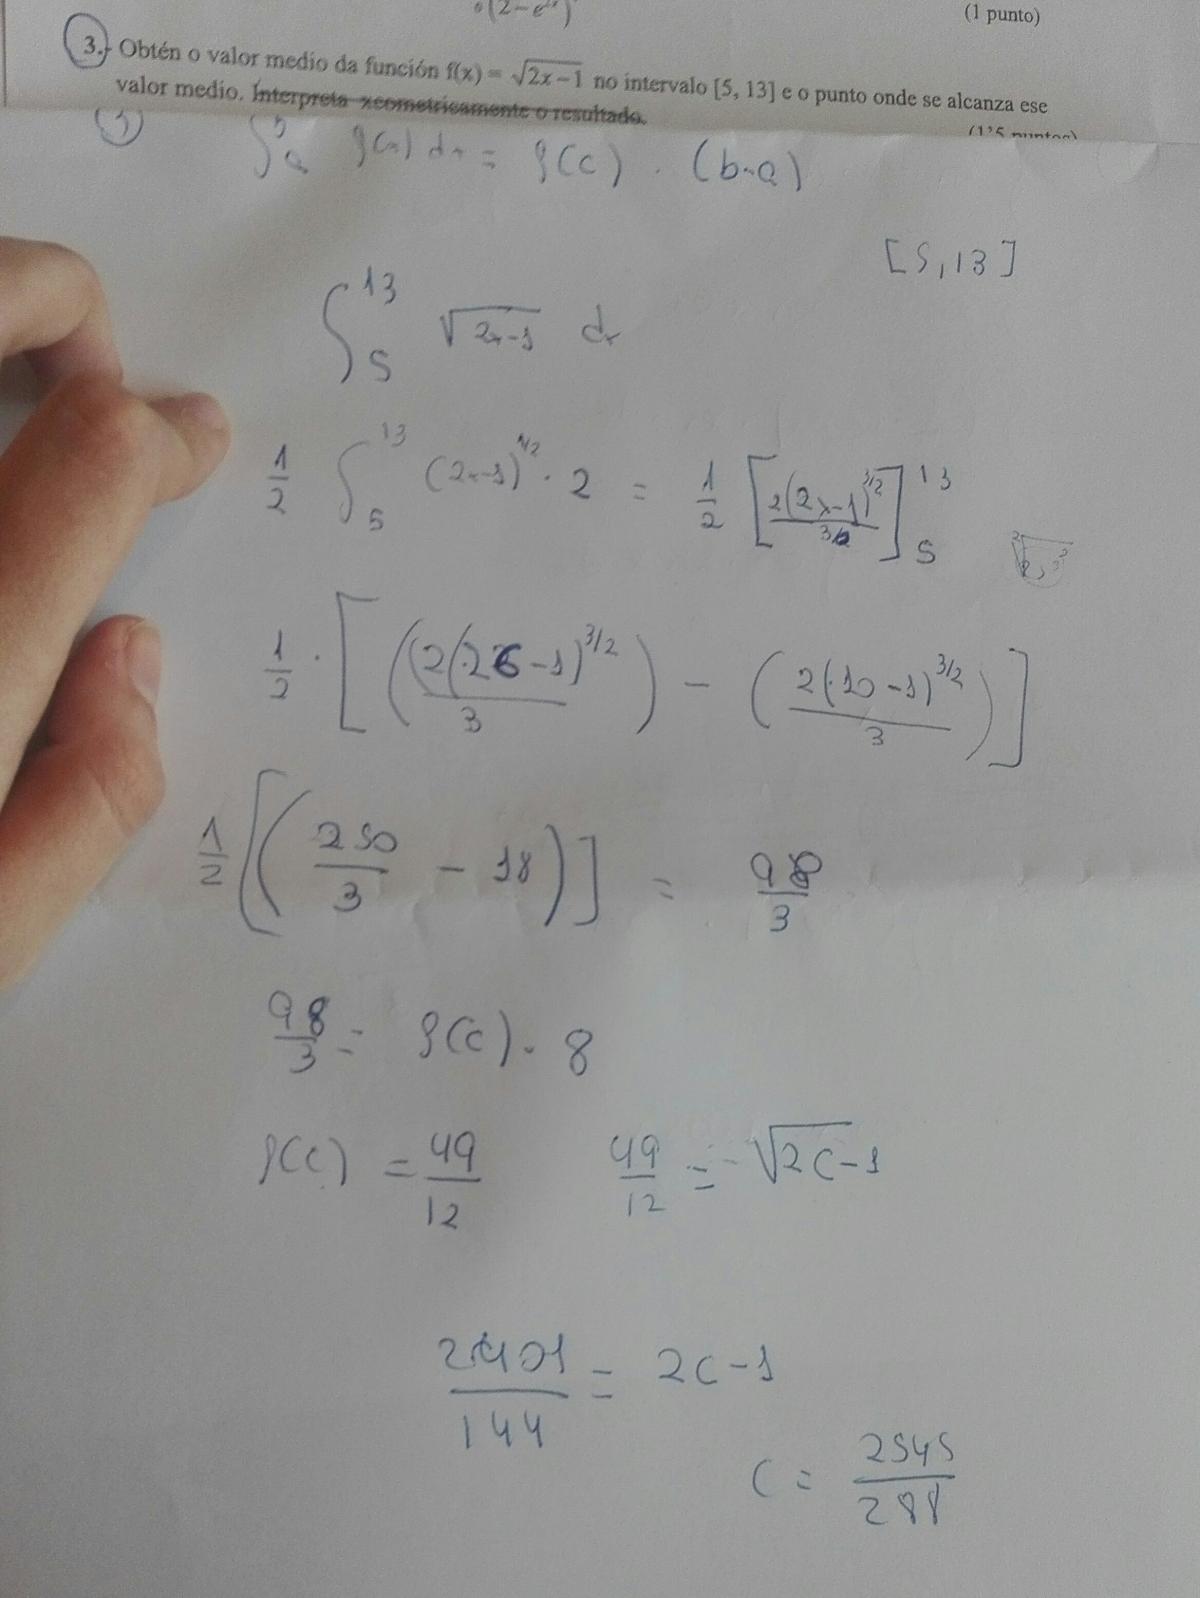 (2-e
(1 punto)
3.- Obtén o valor medio da función f(x) = √2x-1 no intervalo [5, 13] e o punto onde se alcanza ese
valor medio. Interpreta xeometricamente o resultado.
(1'5 puntos)
3
∫ₐᵇ f(x) dx = f(c) · (b-a)
[5,13]
∫₅¹³ √2x-1 dx
1/2 ∫₅¹³ (2x-1)^1/2 · 2 = 1/2 [2(2x-1)^3/2 / 3]₅¹³
1/2 · [(2(26-1)^3/2 / 3) - (2(10-1)^3/2 / 3)]
1/2 [(250/3 - 18)] = 98/3
98/3 = f(c) · 8
f(c) = 49/12 49/12 = √2c-1
2401/144 = 2c-1
c = 2545/288